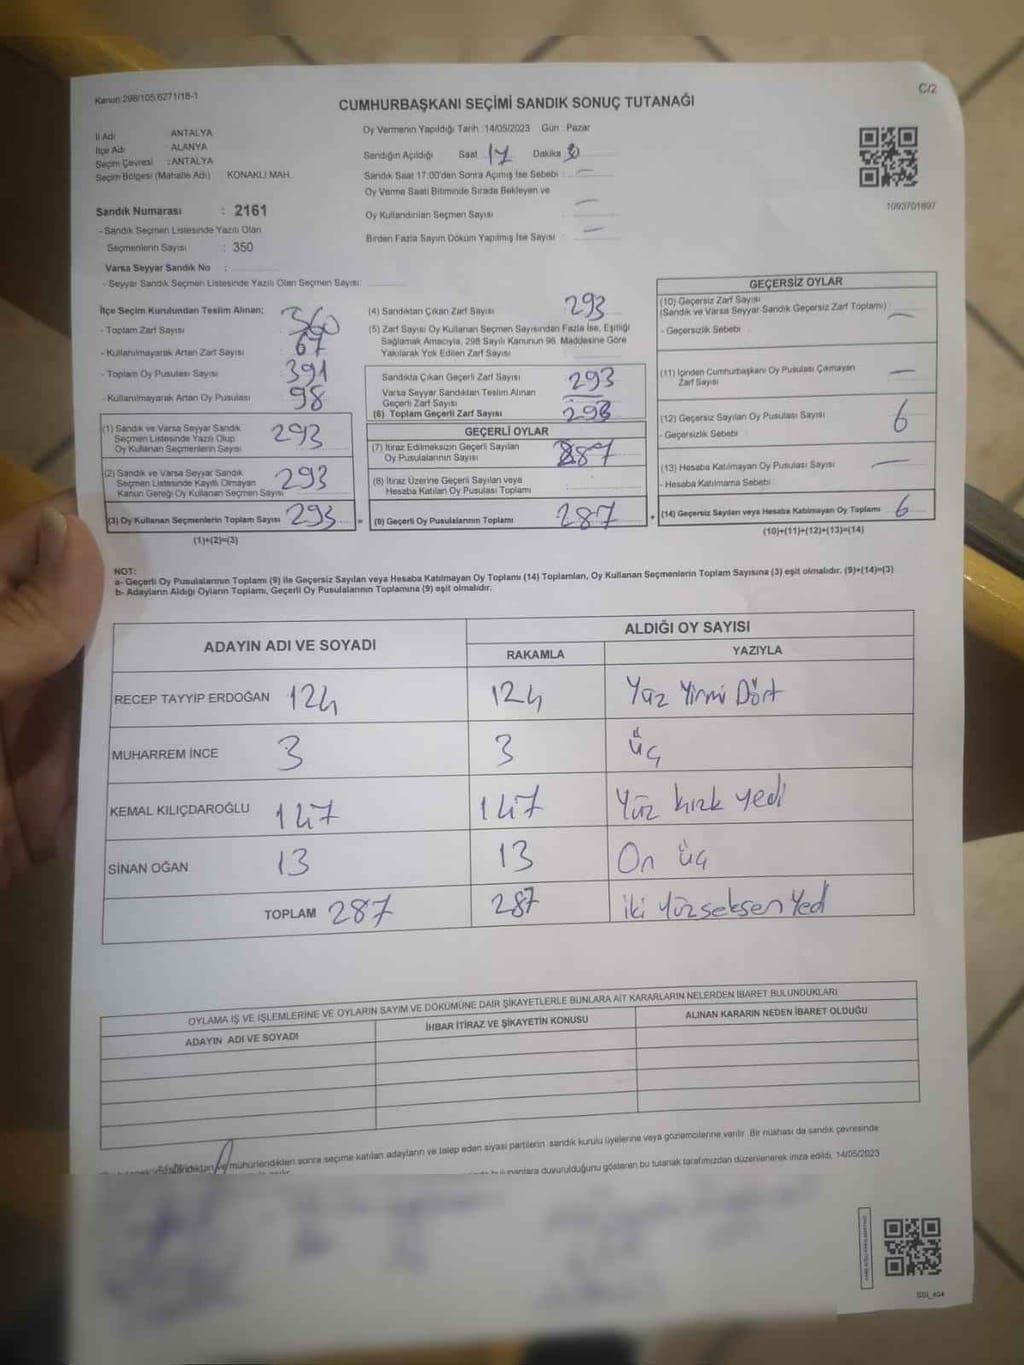 Kanun:298/105,6271/18-1
C/2
CUMHURBAŞKANI SEÇİMİ SANDIK SONUÇ TUTANAĞI
İl Adı ANTALYA
İlçe Adı ALANYA
Seçim Çevresi :ANTALYA
Seçim Bölgesi (Mahalle Adı) KONAKLI MAH.
Oy Vermenin Yapıldığı Tarih :14/05/2023 Gün : Pazar
Sandığın Açıldığı Saat 17 Dakika
Sandık Saat 17:00'den Sonra Açımış İse Sebebi : —
Oy Verme Saati Bitiminde Sırada Bekleyen ve
Oy Kullandırılan Seçmen Sayısı : —
Birden Fazla Sayım Döküm Yapılmış İse Sayısı : —
1093701897
Sandık Numarası : 2161
- Sandık Seçmen Listesinde Yazılı Olan
Seçmenlerin Sayısı : 350
Varsa Seyyar Sandık No :
- Seyyar Sandık Seçmen Listesinde Yazılı Olan Seçmen Sayısı:
İlçe Seçim Kurulundan Teslim Alınan;
- Toplam Zarf Sayısı 360
- Kullanılmayarak Artan Zarf Sayısı 67
- Toplam Oy Pusulası Sayısı 391
- Kullanılmayarak Artan Oy Pusulası 98
(1) Sandık ve Varsa Seyyar Sandık
Seçmen Listesinde Yazılı Olup
Oy Kullanan Seçmenlerin Sayısı 293
(2) Sandık ve Varsa Seyyar Sandık
Seçmen Listesinde Kayıtlı Olmayan
Kanun Gereği Oy Kullanan Seçmen Sayısı 293
(3) Oy Kullanan Seçmenlerin Toplam Sayısı 293 =
(1)+(2)=(3)
(4) Sandıktan Çıkan Zarf Sayısı 293
(5) Zarf Sayısı Oy Kullanan Seçmen Sayısından Fazla İse, Eşitliği
Sağlamak Amacıyla, 298 Sayılı Kanunun 98. Maddesine Göre
Yakılarak Yok Edilen Zarf Sayısı
Sandıkta Çıkan Geçerli Zarf Sayısı 293
Varsa Seyyar Sandıktan Teslim Alınan
Geçerli Zarf Sayısı —
(6) Toplam Geçerli Zarf Sayısı 293
GEÇERLİ OYLAR
(7) İtiraz Edilmeksizin Geçerli Sayılan
Oy Pusulalarının Sayısı 287
(8) İtiraz Üzerine Geçerli Sayılan veya
Hesaba Katılan Oy Pusulası Toplamı
(9) Geçerli Oy Pusulalarının Toplamı 287 +
GEÇERSİZ OYLAR
(10) Geçersiz Zarf Sayısı
(Sandık ve Varsa Seyyar Sandık Geçersiz Zarf Toplamı) —
- Geçersizlik Sebebi
(11) İçinden Cumhurbaşkanı Oy Pusulası Çıkmayan
Zarf Sayısı —
(12) Geçersiz Sayılan Oy Pusulası Sayısı 6
- Geçersizlik Sebebi
(13) Hesaba Katılmayan Oy Pusulası Sayısı —
- Hesaba Katılmama Sebebi
(14) Geçersiz Sayılan veya Hesaba Katılmayan Oy Toplamı 6
(10)+(11)+(12)+(13)=(14)
NOT:
a- Geçerli Oy Pusulalarının Toplamı (9) ile Geçersiz Sayılan veya Hesaba Katılmayan Oy Toplamı (14) Toplamları, Oy Kullanan Seçmenlerin Toplam Sayısına (3) eşit olmalıdır. (9)+(14)=(3)
b- Adayların Aldığı Oyların Toplamı, Geçerli Oy Pusulalarının Toplamına (9) eşit olmalıdır.
ADAYIN ADI VE SOYADI
ALDIĞI OY SAYISI
RAKAMLA YAZIYLA
RECEP TAYYİP ERDOĞAN 124 124 Yüz Yirmi Dört
MUHARREM İNCE 3 3 üç
KEMAL KILIÇDAROĞLU 147 147 Yüz kırk yedi
SİNAN OĞAN 13 13 On üç
TOPLAM 287 287 iki yüzseksenYedi
OYLAMA İŞ VE İŞLEMLERİNE VE OYLARIN SAYIM VE DÖKÜMÜNE DAİR ŞİKAYETLERLE BUNLARA AİT KARARLARIN NELERDEN İBARET BULUNDUKLARI
ADAYIN ADI VE SOYADI İHBAR İTİRAZ VE ŞİKAYETİN KONUSU ALINAN KARARIN NEDEN İBARET OLDUĞU
mühürlendikten sonra seçime katılan adayların ve talep eden siyasi partilerin sandık kurulu üyelerine veya gözlemcilerine verilir. Bir nüshası da sandık çevresinde
bulunanlara duyurulduğunu gösteren bu tutanak tarafımızdan düzenlenerek imza edildi, 14/05/2023